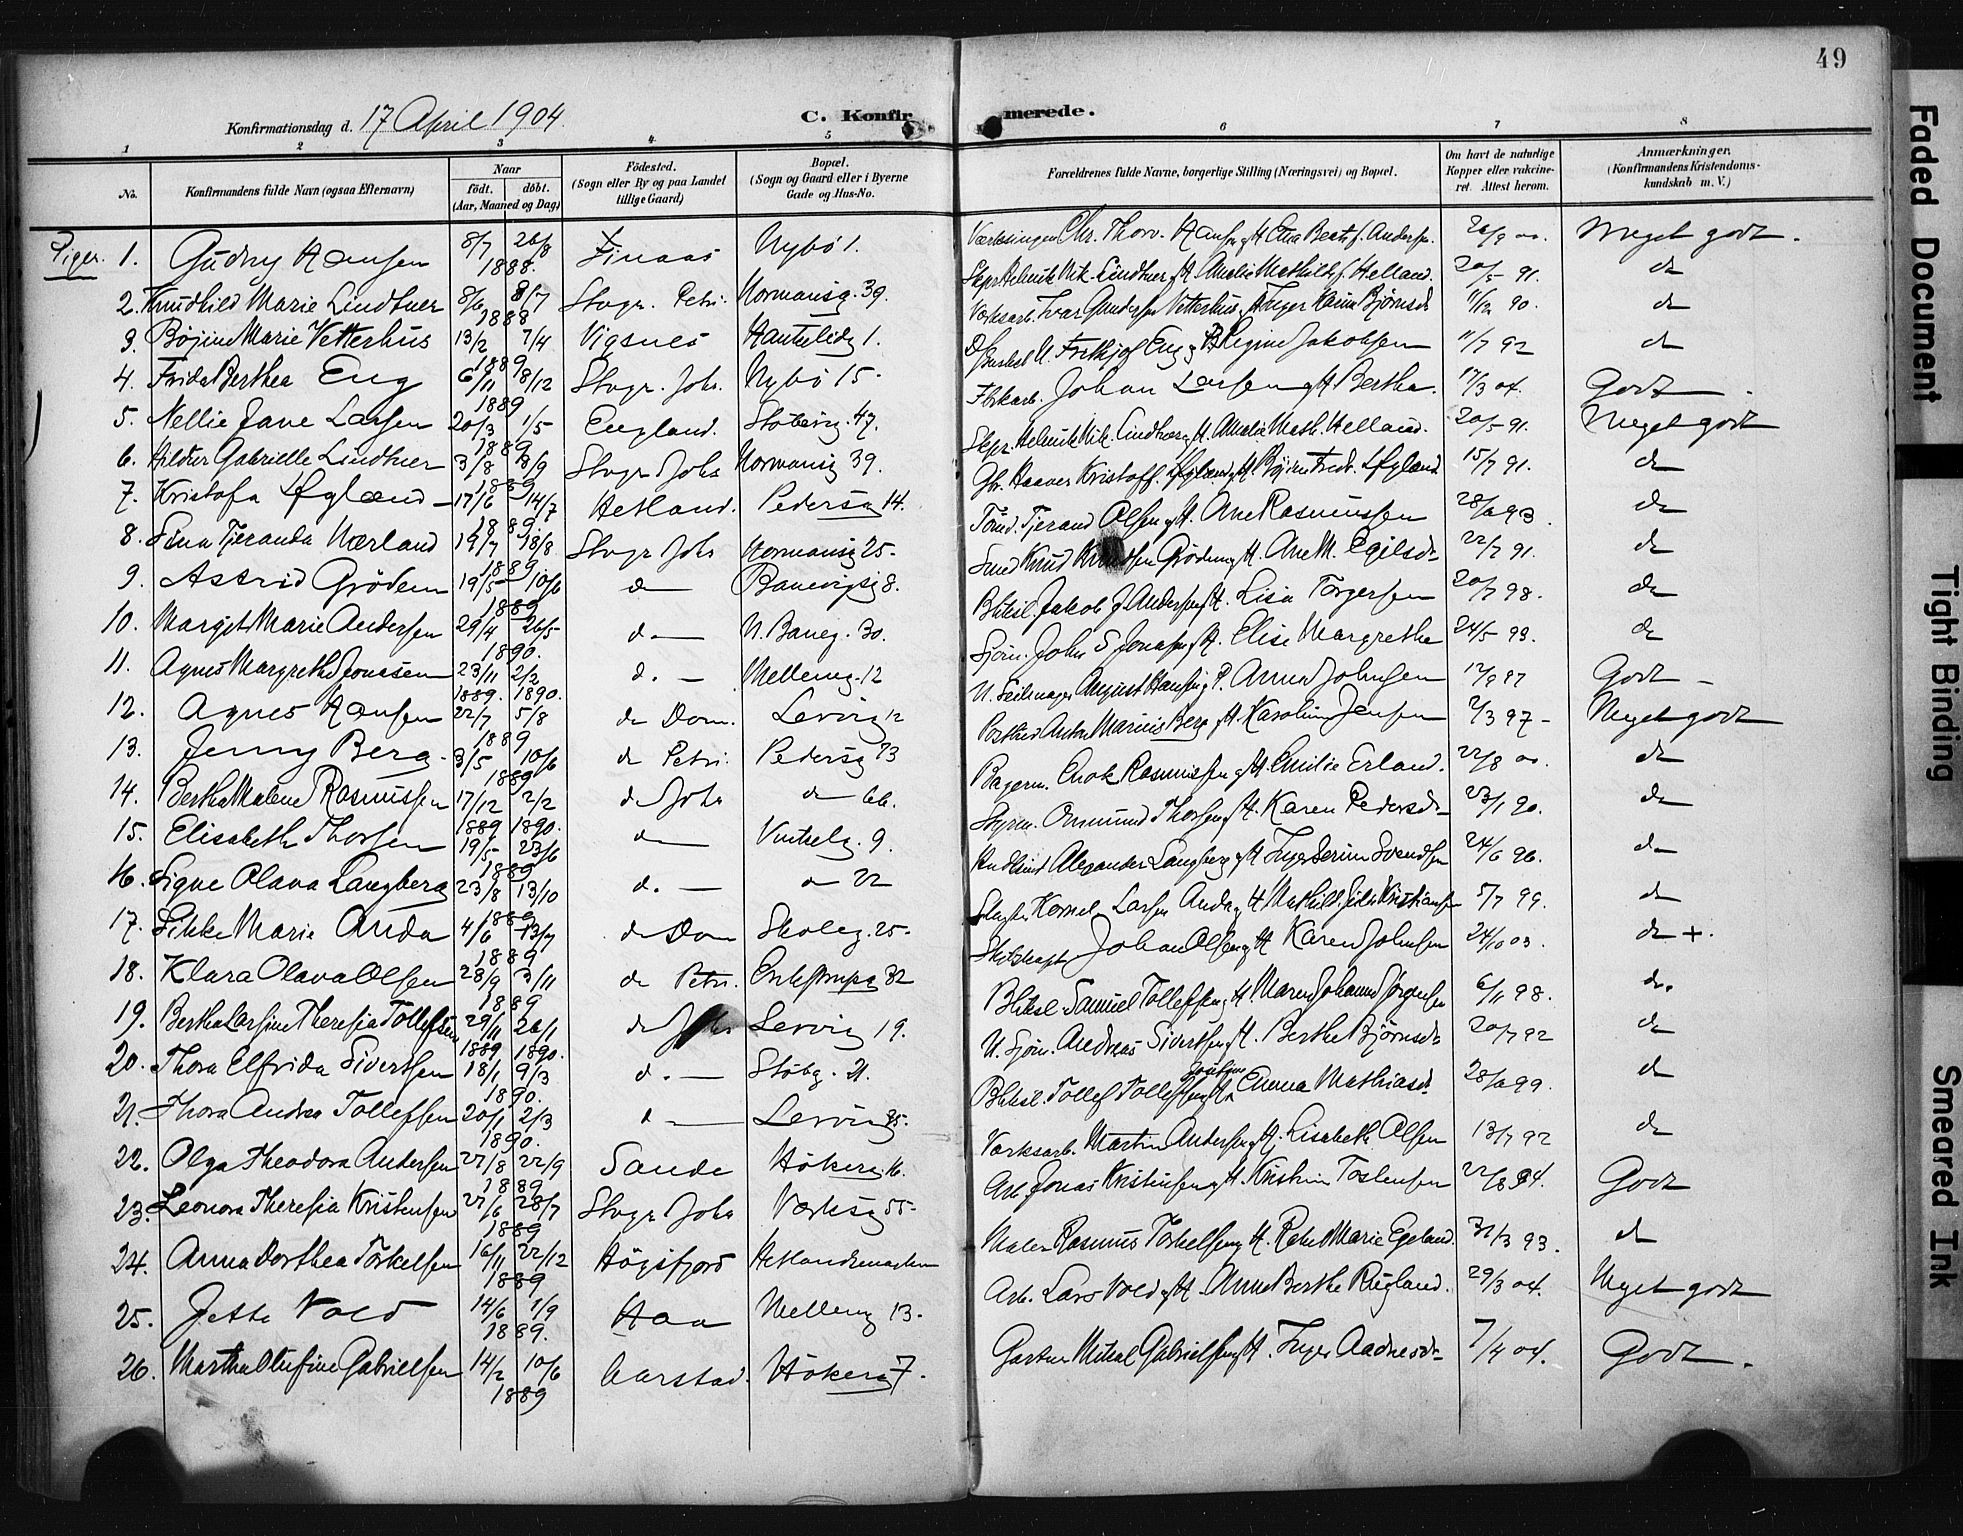 49
Konfirmationsdag d. 17 April 1904.
C. Konfirmerede.
1 2 3 4 5 6 7 8
No. Konfirmandens fulde Navn (ogsaa Efternavn) Naar født. døbt. (Aar, Maaned og Dag) Fødested. (Sogn eller By og paa Landet tillige Gaard) Bopæl. (Sogn og Gaard eller i Byerne Gade og Hus-No. Forældrenes fulde Navne, borgerlige Stilling (Næringsvei) og Bopæl. Om havt de naturlige Kopper eller vakcineret. Attest herom. Anmærkninger. (Konfirmandens Kristendomskundskab m. V.)
Piger. 1. Gudny Hansen 8/7 26/8 1888. Finaas Nybö 1. Chr. Thorv. Hansen Meget godt.
2. Marie Lindtner 8/6 8/7 1888 Stvgr. Petri. Normansg. 39. Skpr. Helmik Nik. Lindtner og H. Amalie Mathilde f. Helland. 20/5 91. do
3. Marie Vetterhus 13/2 7/4 1889 Vigsnes 1. Værksarb. Ivar Gundersen Vetterhus og H. Inger Karine Bjørnsdr 11/12 90. do
4. Frida Berthea Eug 6/11 8/12 1889 Stvgr. Johs. Nybö 15. Frithjof Eug og Regine Jakobsen 11/7 92 do
5. Nellie Jane Larsen 20/3 1/5 1889 England. Stöberig. 47. Johan Larsen og H. Bertha. 17/3 04. Godt.
6. Hildur Gabrielle Lindtner 3/8 8/9 1889 Stvgr Johs Normansg 39. Skpr. Helmik Nik. Lindtner og H. Amalie Math. Helland. 20/5 91. Meget godt
7. Kristofa 17/6 14/7 1889. Hetland. Pedersg 14. Kristoff. 15/7 91. do
8. Sina Tjeranda Nærland 19/7 18/8 1889 Stvgr Johs Normansg 25. Tjerand Olsen og H. Ane Rasmussen 28/ 93. do
9. Astrid Grödem 19/5 10/6 1889 do Banevigsg 8. Smed Knud Grödem og H. Ane M. Egilsdr 22/7 91. do
10. Margit Marie Andersen 29/4 26/5 1890. do N. Baneg. 30. Jakob J. Andersen og H. Lisa Torgersen 20/7 98. do
11. Agnes Margrethe Jonassen 23/11 2/2 1889. 1890. do Mellemg. 12 Sjöm. John S Jonassen og H. Elise Margrethe 24/5 93. do
12. Agnes Hansen 22/7 5/8 1889 do Dom. Lervig 12 August Hansen og Anna Johnsen 12/9 97 Godt
13. Jenny Berg. 3/5 10/6 1889 do Petri. Pedersg 73 Anton Marius Berg og H. Karoline Jensen 2/3 97 Meget godt
14. Bertha Malene Rasmussen 17/12 2/2 1889 1890. do Johs do 66. Bagerm. Enok Rasmussen og H. Emilie Erland. 22/8 00. do
15. Elisabeth Thorsen 19/5 23/6 1889 do Vintelg. 9. Styrm. Ommund Thorsen og H. Karen Pedersdr 23/1 90. do
16. Signe Olava Langberg 23/8 13/10 1889 do do 22 Alexander Langberg og H. Inger Serine Svendsen 24/6 96. do
17. Sikke Marie Anda 4/6 13/7 1889 do Dom Skoleg. 25. Slagter Kornel. Larsen Anda og H. Kristiansen 5/7 99. do
18. Klara Olava Olsen 28/9 3/11 1889 do Petri. 32 Johan Olsen og H Karen Johnsen 24/10 03. do +.
19. Bertha Larsine Theresia Tollefsen 29/11 26/1 1889 1890. do Johs Lervig 19. Samuel Tollefsen og H Maren Johanne Jörgensen 6/11 98. do.
20. Thora Elfrida Sivertsen 18/1 9/3 1890. do Stöbg. 21. N. Sjöm. Andreas Sivertsen og H. Berthe Bjørnsdr 20/7 92 do
21. Thora Andrea Tollefsen 20/1 2/3 1890. do Lervig 35. Tollef Tollefsen og Emma Mathiasdr 28/ 99. do
22. Olga Theodora Andersen 27/8 22/9 1889 Sande Hökerg 16. Værksarb. Martin Andersen og H. Lisabeth Olsen 13/7 92 do
23. Leonora Theresia Kristensen 27/6 28/7 1889 Stvgr Johs Værksg 55. Arb. Jonas Kristensen og H. Kristine Tostensen 22/8 94. Godt
24. Anna Dorthea Törkelsen 16/11 22/12 1889 Högsfjord Hetlandsmarken Maler Rasmus Törkelsen og H. Rakel Marie Egeland. 31/3 93. do
25. Jette Vold 14/6 1/9 1889. Haa Mellemg 13. Arb. Lars Vold og H. Anne Berthe Rugland. 29/3 04. Meget godt
26. Martha Olufine Gabrielsen 14/2 10/6 1889 Aarstad. Hökerg 7. Gartner Mikal Gabrielsen og H. Inger Aadnesdr 7/4 04. Godt.
Faded Document
Tight Binding
Smeared Ink